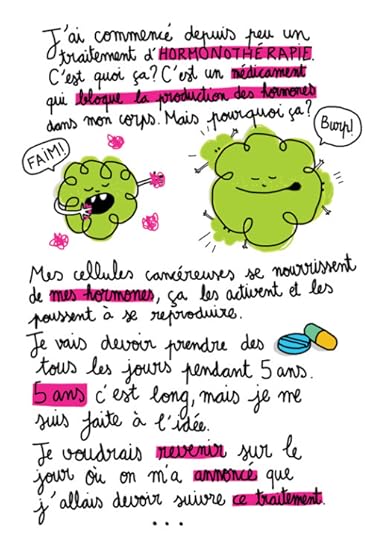 J'ai commencé depuis peu un
traitement d'HORMONOTHÉRAPIE.
C'est quoi ça? C'est un médicament
qui bloque la production des hormones
dans mon corps. Mais pourquoi ça?
FAIM!
Burp!
Mes cellules cancéreuses se nourrissent
de mes hormones, ça les activent et les
poussent à se reproduire.
Je vais devoir prendre des
tous les jours pendant 5 ans.
5 ans c'est long, mais je me
suis faite à l'idée.
Je voudrais revenir sur le
jour où on m'a annoncé que
j'allais devoir suivre ce traitement.
...